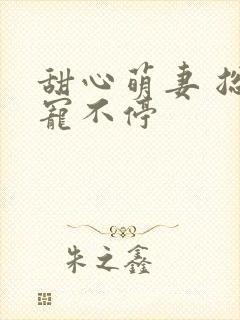 甜心萌妻
宠不停
朱之鑫